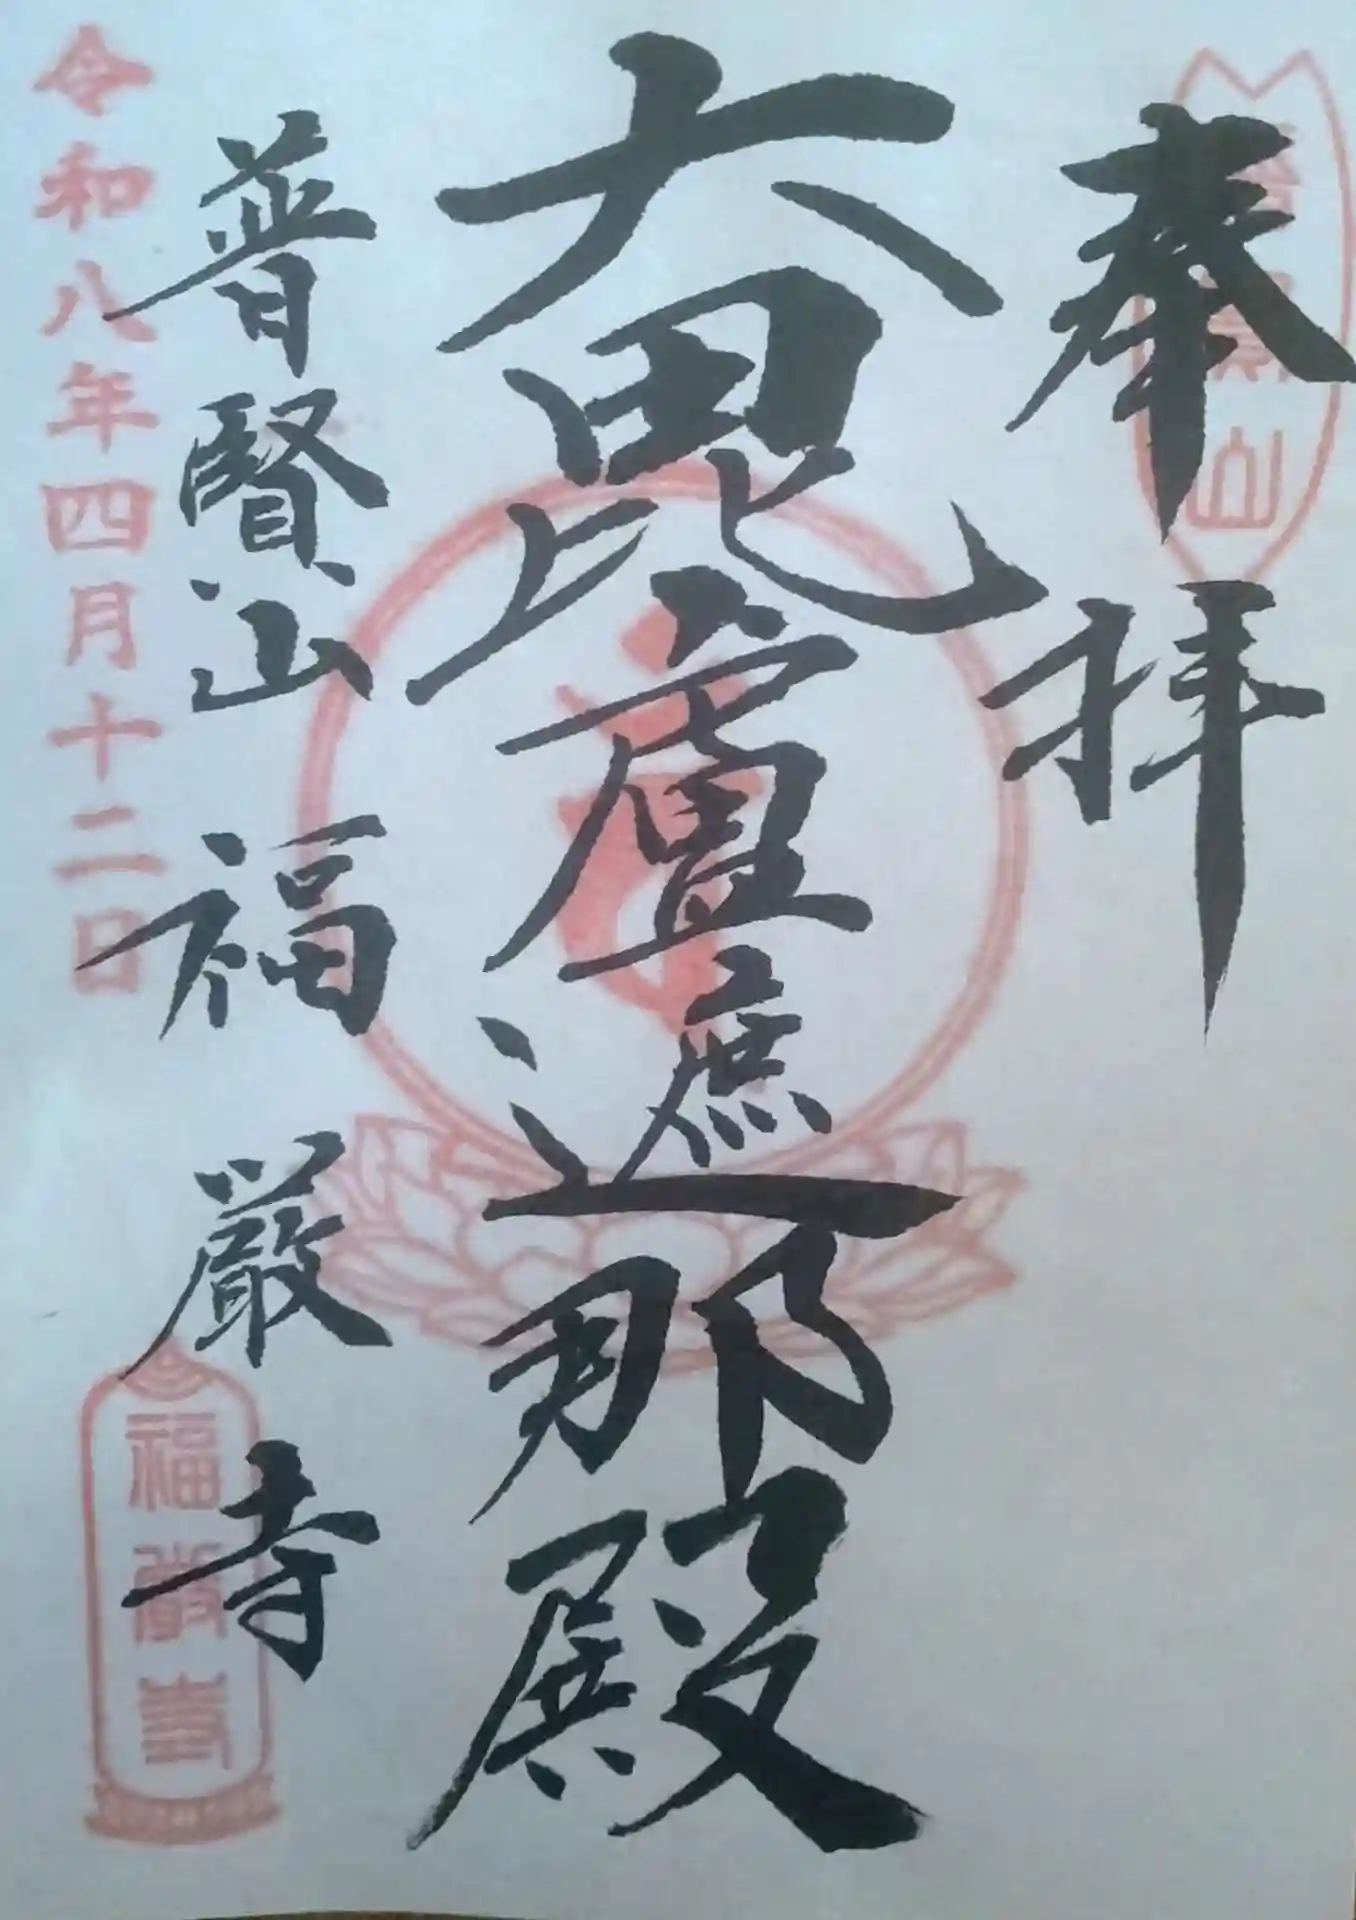 奉拝
大毘盧遮那殿
普賢山 福厳寺
令和八年四月十二日
普賢山
福厳寺